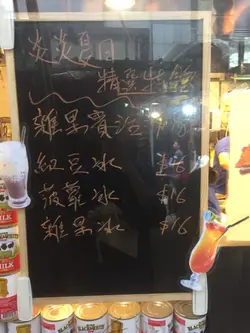 炎炎夏日
精選特飲
雜果賓治
紅豆冰 $16
菠蘿冰 $16
雜果冰 $16
MILK
BLACK&WHITE